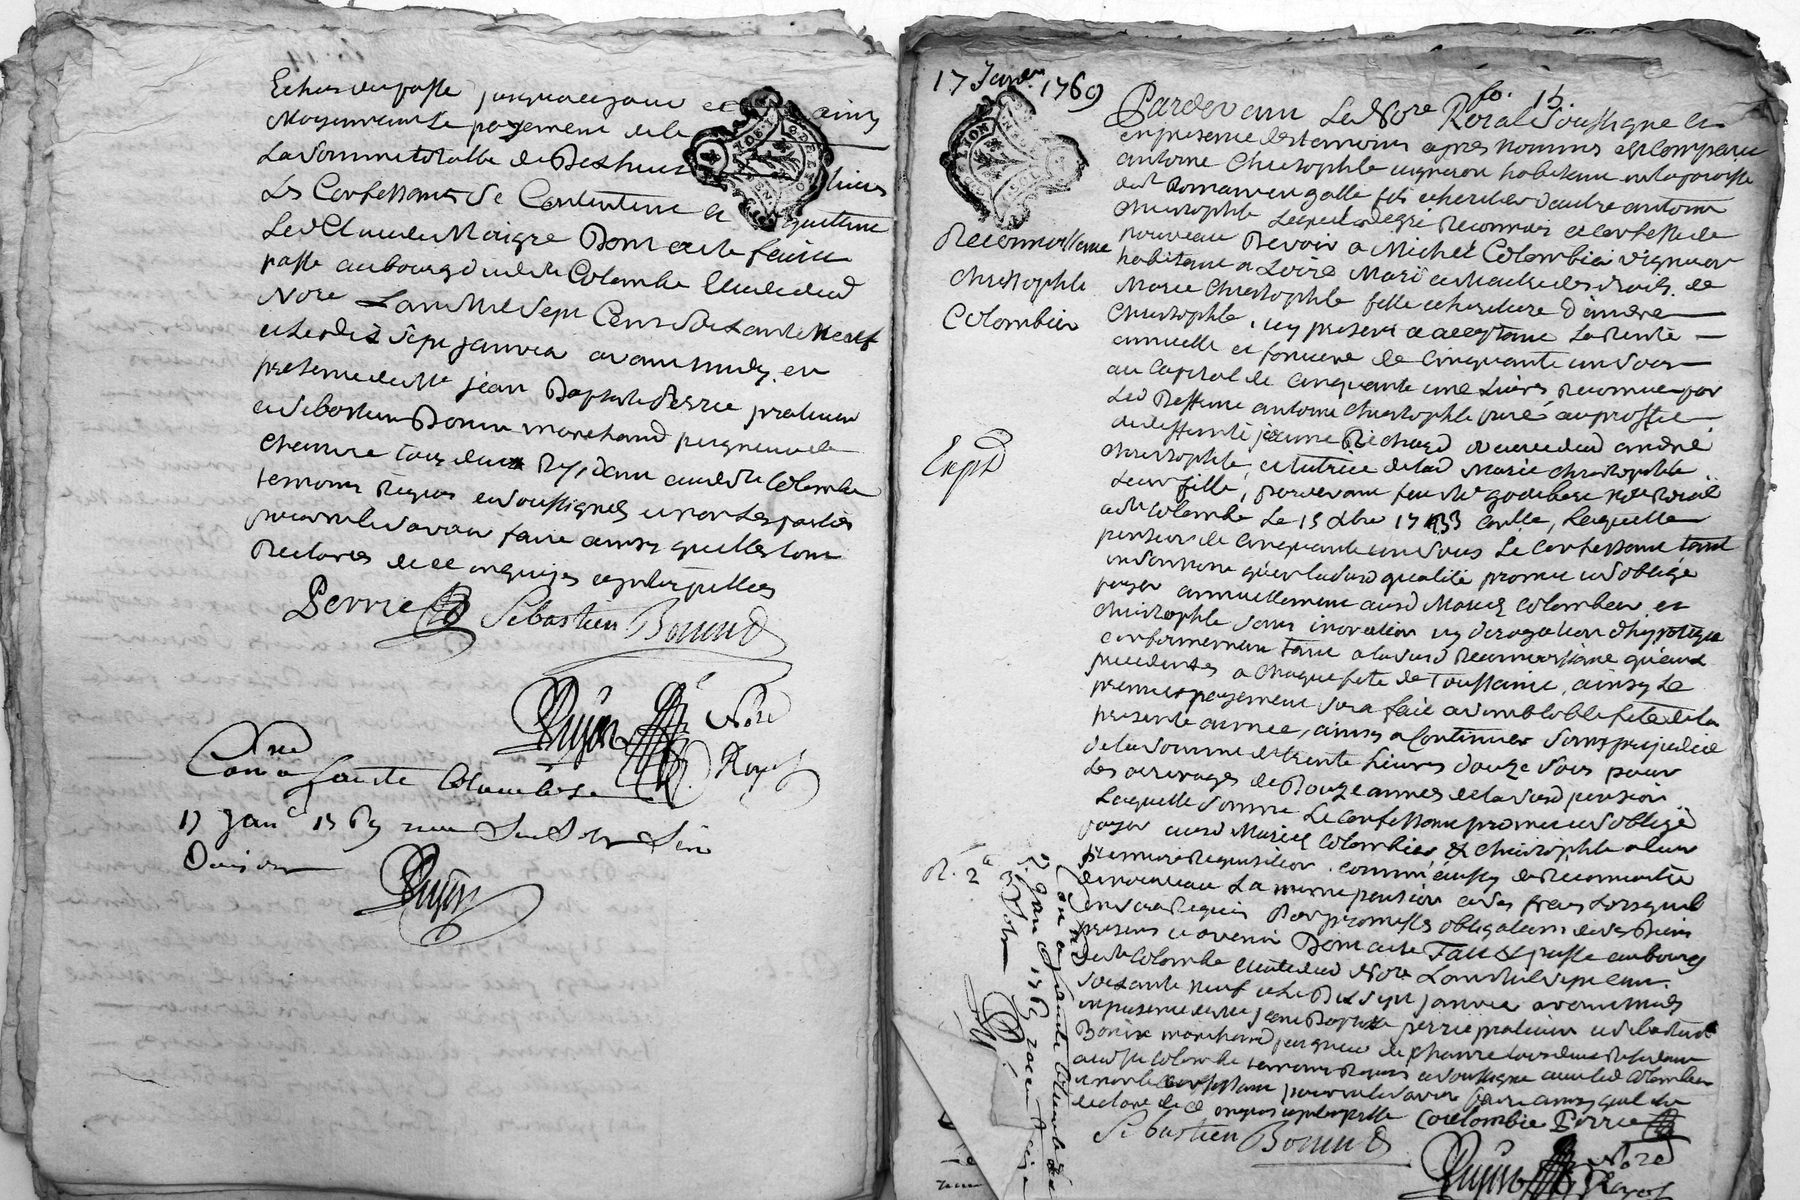 Echus du passé jusqu'a ce jour et
Moyennant le payement de la
La Somme totalle de Dix huit livres
Les Confessants Se Contentent et quittent
Led Claude Maigre Dont acte fait et
passé au bourg de Ste Colombe Etude dud
Nore L'an Mil Sept Cens Soixante Neuf
et le dix Sept janvier avant midy en
presence de Me jean Baptiste Perrie praticien
et Sebastien Bonin marchand peigneur de
chanvre tous deux Residant aud Ste Colombe
temoins Requis et Soussignés et non les parties
pour ne le Scavoir faire ainsy quelles l'ont
Declarées de ce enquises et interpellées
Perrie Sebastien Bonnid
Nore
Royal
Con a Sainte Colombe
17 janr 1769 reçu
Dujon
17 Janer 1769
fo. 15.
Pardevant Le Nore Roial Soussigné et
en presence des temoins apres nommés est Comparu
antoine Christophle vigneron habitant en la paroisse
de St Romain en galle fils et heritier d'autre antoine
Christophle Lequel de gré Reconnoit et Confesse de
nouveau Devoir a Michel Colombier vigneron
habitant a Loire Mari et Maitre des droits de
Marie Christophle fille et heritiere d'andré
Christophle, icy present et acceptant La Rente
annuelle et fonciere de Cinquante un Sous
au Capital de Cinquante une Livres, Reconnue par
Led Deffunt antoine Christophle pere, au proffit
de deffunte jeanne Richard veuve dud andré
Christophle, et tutrice de lad Marie Christophle
Leur fille, pardevant feu Me godibert Nore Roial
a Ste Colombe Le 15 xbre 1733 Contle, Laquelle
pension de Cinquante un Sous Le Confessant tant
en Son nom qu'en lad qualité promet et S'oblige
payer annuellement aud Mariés Colombier et
Christophle Sans inovation ny derogation d'hypoteque
Conformement tant a lad Reconnoissance qu'aux
precedentes a Chaque fete de Toussaint, ainsy Le
premier payement Sera fait a Semblable fete de la
presente année, ainsy a Continuer Sans prejudice
de la Somme de trente Livres douze Sous pour
Les arrerages de Douze années de lad pension
Laquelle Somme Le Confessant promet et S'oblige
payer aud Mariés Colombier et Christophle a leur
premiere Requisition. Comme aussy de Reconnoitre
de nouveau La meme pension a Ses frais Lorsquil
en Sera Requis Par promesses obligations de Ses Biens
presens et avenir Dont acte Fait et passé au bourg
de Ste Colombe Etude dud Nore L'an Mil Sept Cens
Soixante neuf et le Dix Sept janvier avant midy
en presence de Me jean Baptiste perrie praticien et Sebastien
Bonin marchand peigneur de chanvre tous deux Residant
aud Ste Colombe temoins Requis et Soussignés avec led Colombier
et non le Confessant pour ne le Scavoir faire ainsy quil l'a
declaré de ce enquis et interpellé Coulombie Perrie
Sebastien Bonnid
Nore
Royal
Reconnoissance
Christophle
Colombier
Expd
R. 2e
Con a Sainte Colombe Le
17 janr 1769